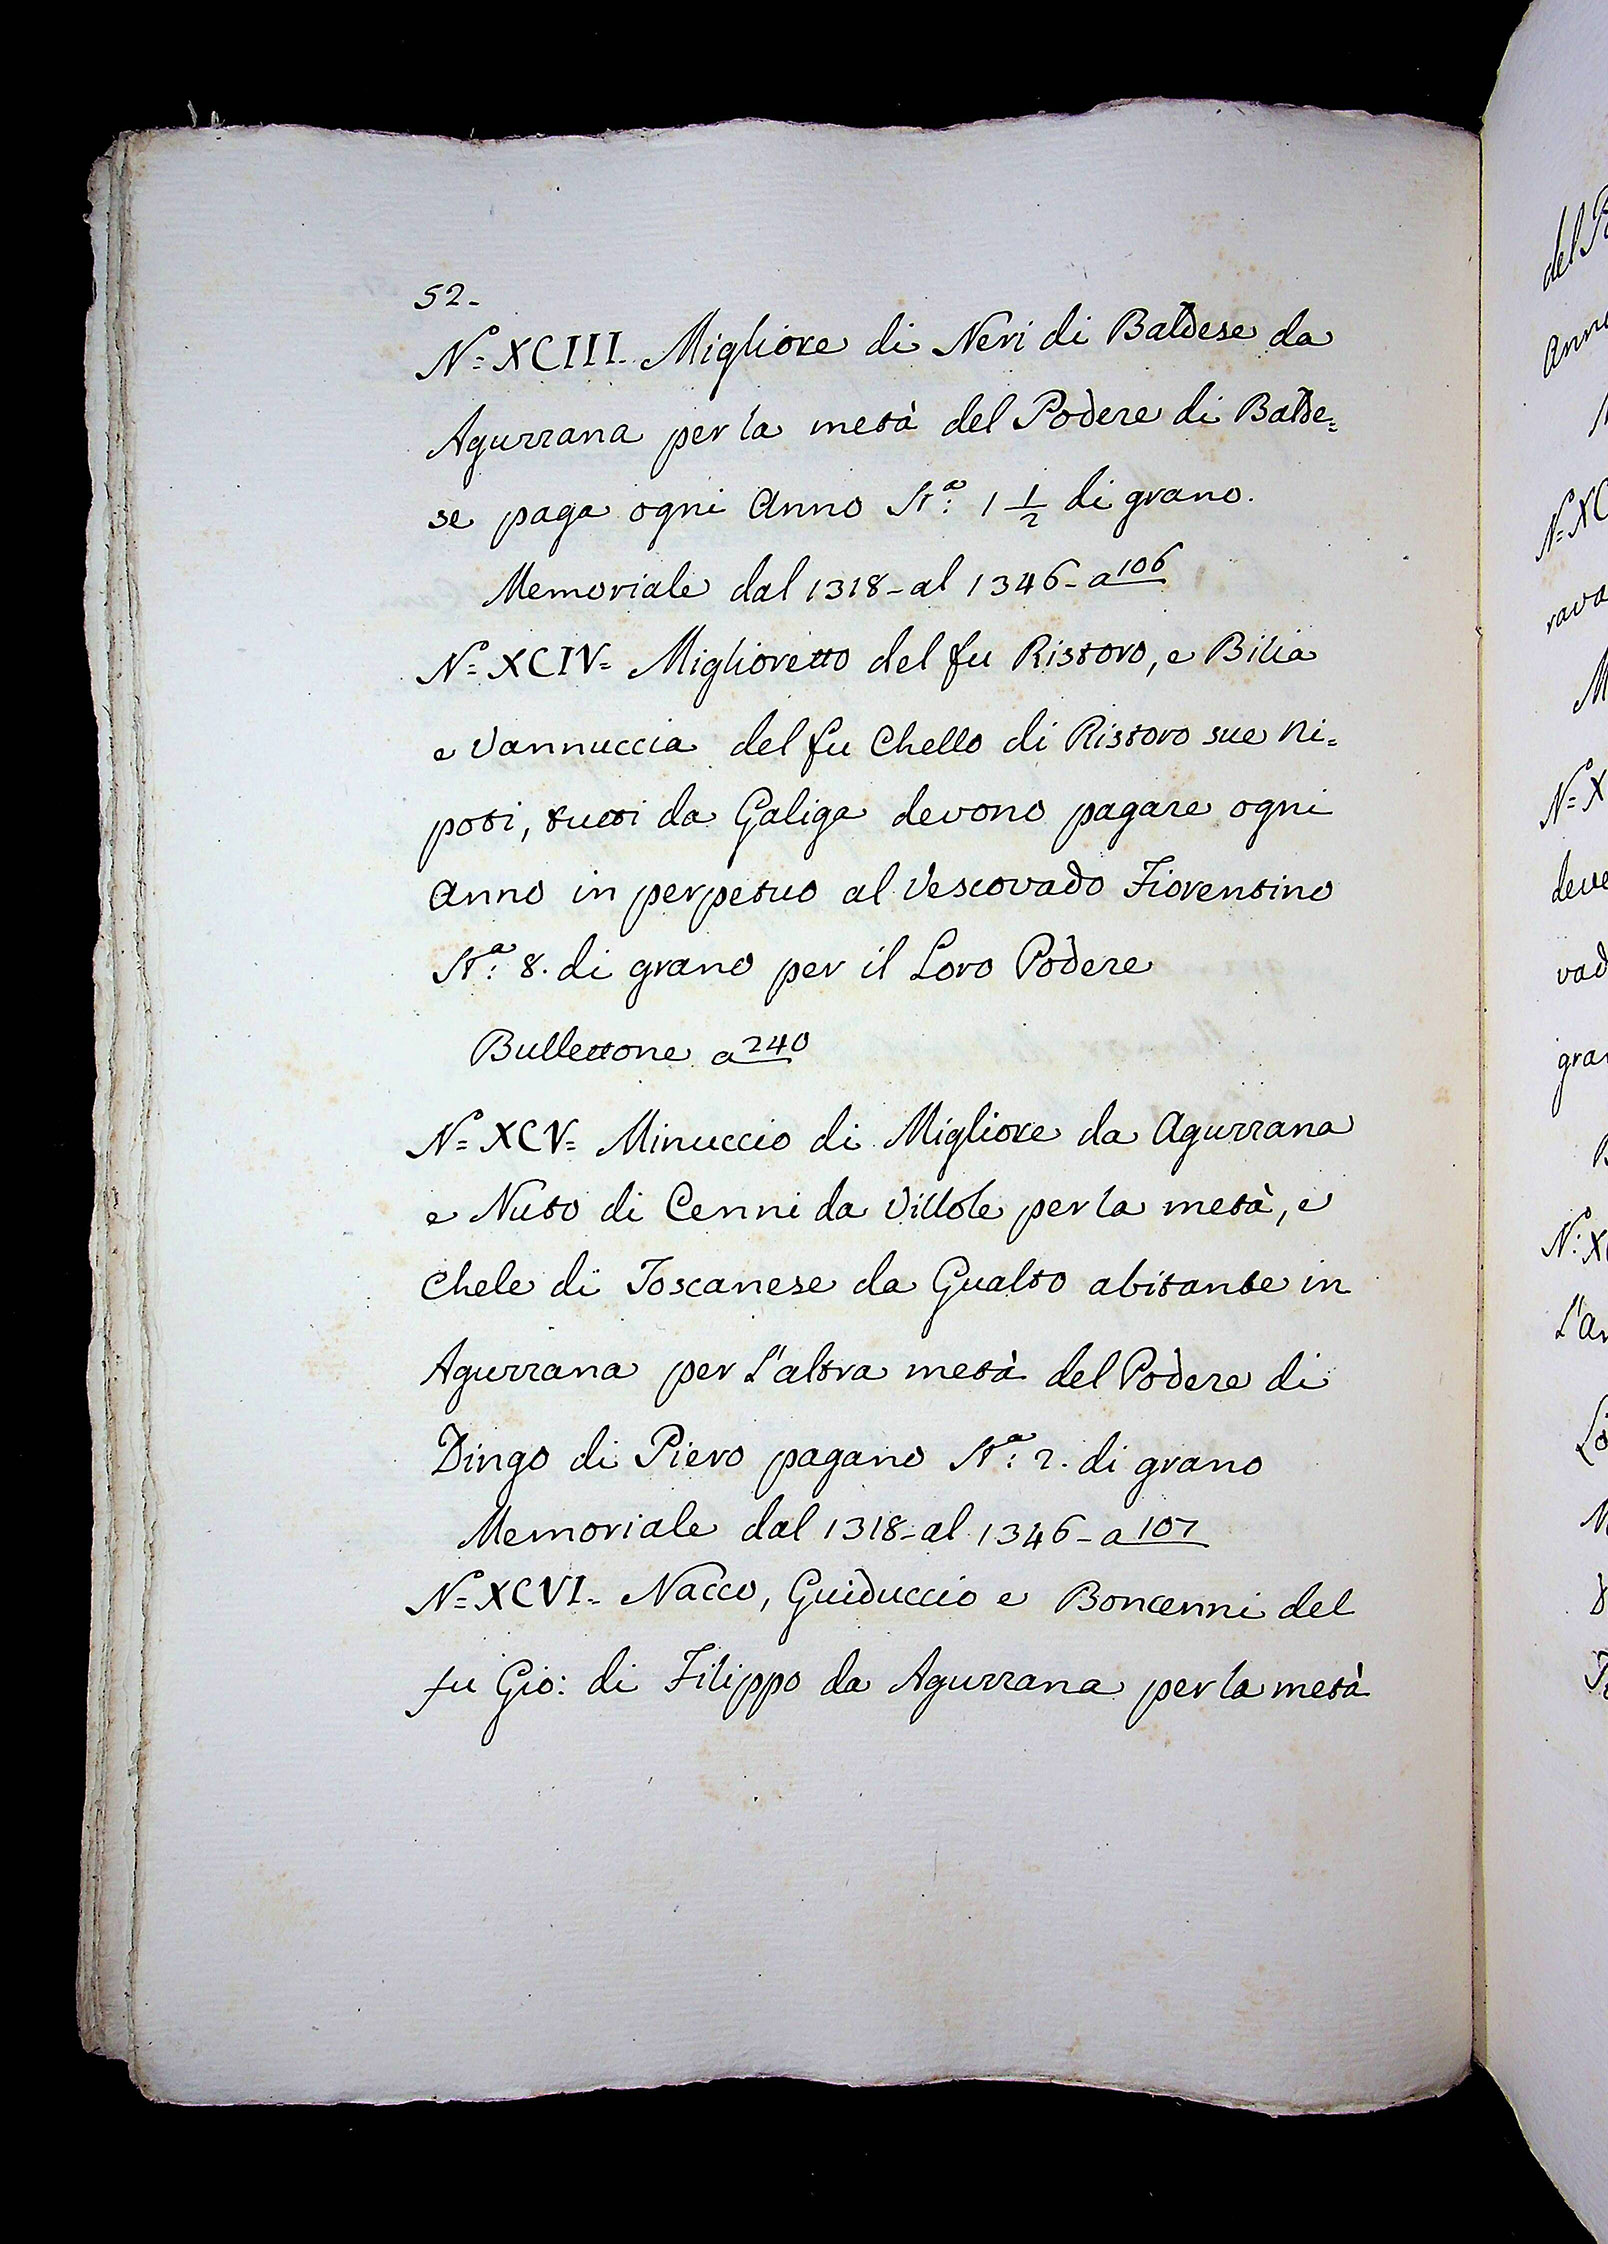 52.
N.º XCIII. Migliore di Neri di Baldese da
Agurrana per la metà del Podere di Balde=
se paga ogni Anno St.ª: 1 1/2 di grano.
Memoriale dal 1318 - al 1346 - a 106
N.º XCIV= Miglioretto del fu Ristoro, e Bilia
e Vannuccia del fu Chello di Ristoro sue Ni=
poti, tutti da Galiga devono pagare ogni
Anno in perpetuo al Vescovado Fiorentino
St.ª: 8. di grano per il Loro Podere
Bullettone a 240
N.º XCV= Minuccio di Migliore da Agurrana
e Nuto di Cenni da Villole per la metà, e
Chele di Toscanese da Gualto abitante in
Agurrana per L'altra metà del Podere di
Dingo di Piero pagano St.ª: 2. di grano
Memoriale dal 1318 - al 1346 - a 107
N.º XCVI= Nacco, Guiduccio e Boncenni del
fu Gio: di Filippo da Agurrana per la metà